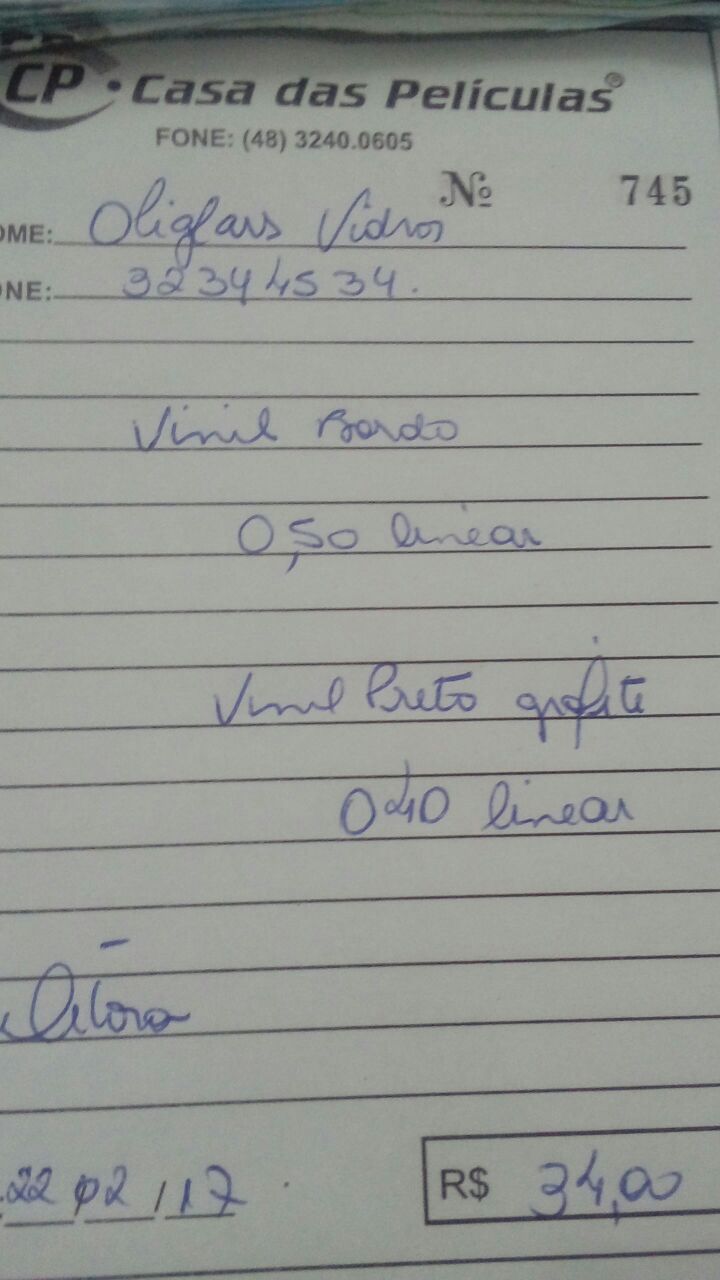 CP • Casa das Películas®
FONE: (48) 3240.0605
Nº 745
OME: Oliglass Vidros
ONE: 32344534.
Vinil Bordo
0,50 linear
Vinil Preto grafite
040 linear
22/02/17
R$ 34,00